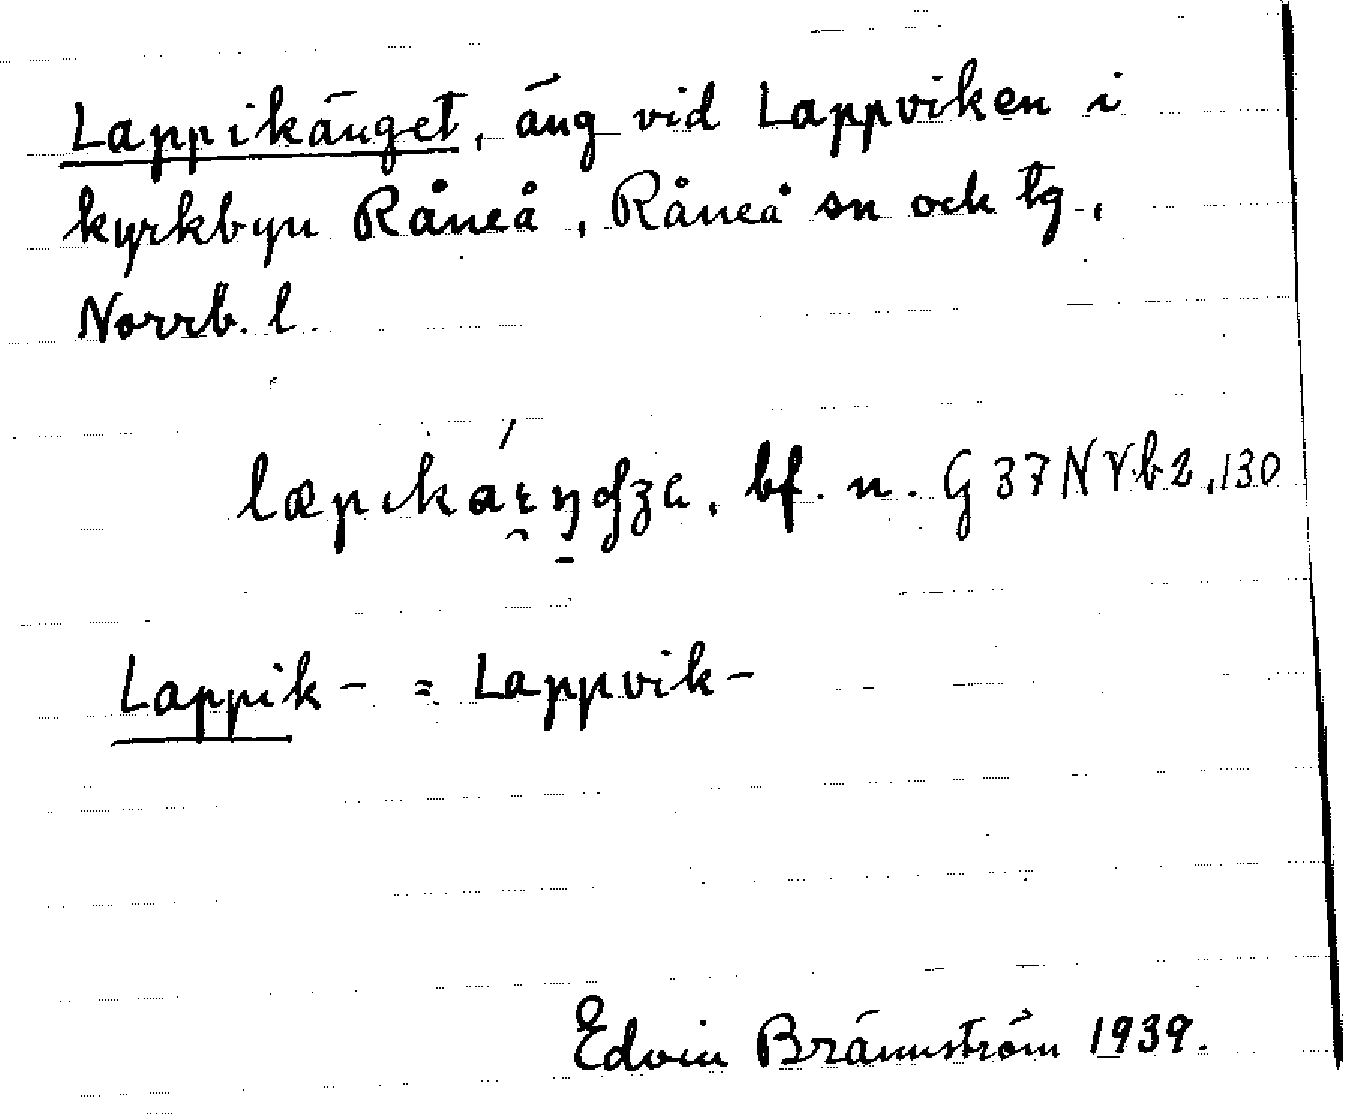 Lappikänget, äng vid Lappviken i
kyrkbyn Råneå, Råneå sn ock tg,
Norrb. l.
bf. n. G 37 N V.b 2, 130
Lappik- = Lappvik-
Edvin Brännström 1939.